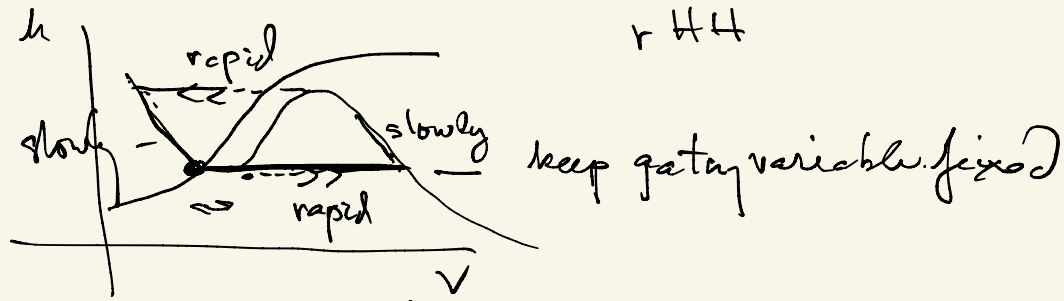 n
r HH
rapid
slowly
slowly
keep gating variable fixed
rapid
V